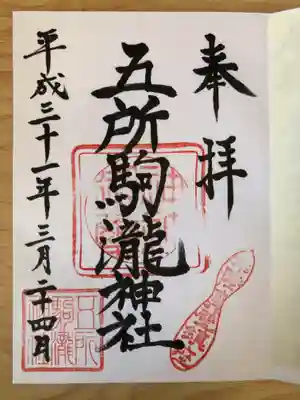 奉拝
五所駒瀧神社
平成三十一年三月二十四日